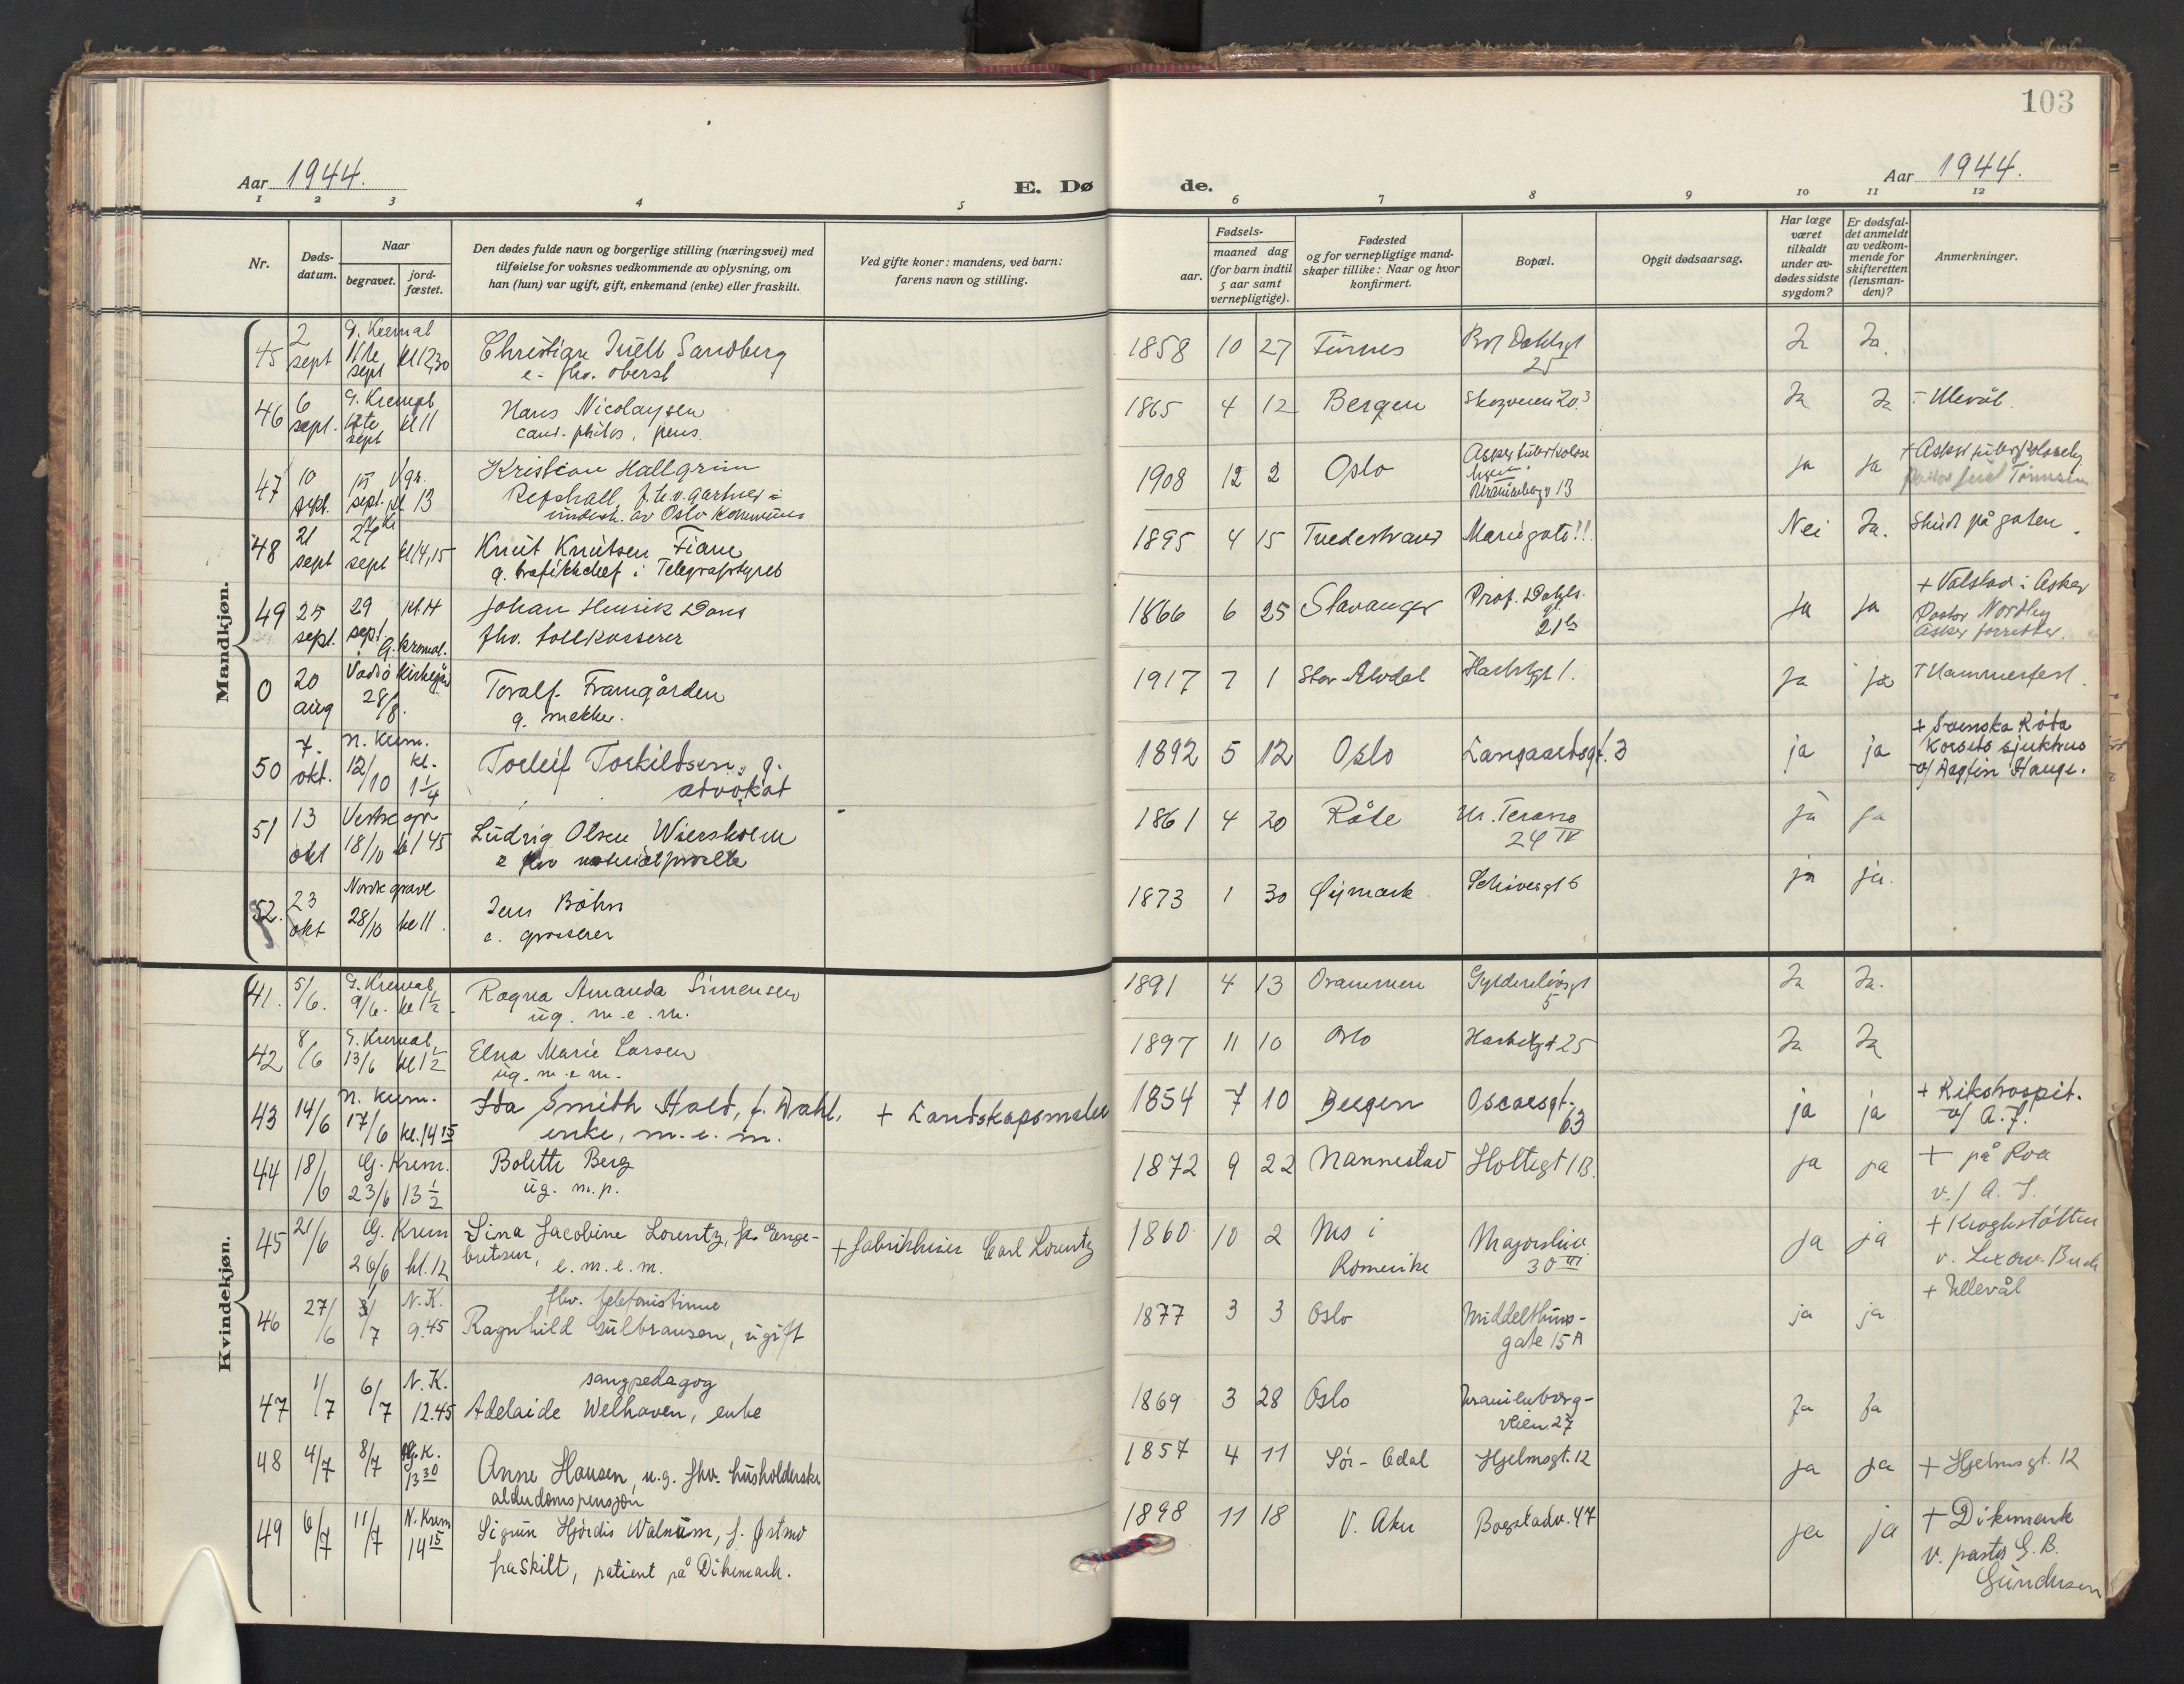 103
Aar 1944.
E. Dø
de.
Aar 1944.
1 2 3 4 5 6 7 8 9 10 11 12
Nr.
Døds-
datum.
Naar
begravet.
jord-
fæstet.
Den dødes fulde navn og borgerlige stilling (næringsvei) med
tilføielse for voksnes vedkommende av oplysning, om
han (hun) var ugift, gift, enkemand (enke) eller fraskilt.
Ved gifte koner: mandens, ved barn:
farens navn og stilling.
aar.
Fødsels-
maaned dag
(for barn indtil
5 aar samt
vernepligtige).
Fødested
og for vernepligtige mand-
skaper tillike: Naar og hvor
konfirmert.
Bopæl.
Opgit dødsaarsag.
Har læge
været
tilkaldt
under av-
dødes sidste
sygdom?
Er dødsfal-
det anmeldt
av vedkom-
mende for
skifteretten
(lensman-
den)?
Anmerkninger.
Mandkjøn.
45 2 sept sept kl 12,30 Christian Sandberg
e. fhv. oberst
1858 10 27 Furnes 25 Ja Ja
46 6 sept. sept kl 11 Hans Nicolaysen
cand. philos, pens.
1865 4 12 Bergen 20 Ja Ja Ullevål
47 10 sept. 15 sept. V.gr. kl. 13 Kristian Hallgrim
Repshall, f.h.v. gartner i
underst. av Oslo kommune
1908 12 2 Oslo 13 ja ja
48 21 sept sept kl 14,15 Knut Knutsen Fiane
g. trafikkchef i Telegrafstyret
1895 4 15 Tvedestrand Mariegate 11 Nei Ja. Skudt på gaten.
49 25 sept. 29 sept. G. Kremat. kl. 14 Johan Henrik Dons
fhv. tollkasserer
1866 6 25 Stavanger Prof. Dahls
gt. 21 ja ja + Valstad i Asker
Pastor Nordby
Asker forretter.
0 20 aug Vadsø kirkegård 28/8. Toralf Framgården
g. møkker.
1917 7 1 Stor Alvdal 1. ja ja + Hammerfest.
50 7. okt. N. krem. 12/10 kl. 1 1/4 Torleif Torkildsen, g.
advokat
1892 5 12 Oslo Langaardsgt. 3 ja ja + Svenska Röda
Korsets sjukhus
v/ Dagfin Hauge.
51 13 okt Vestre gr 18/10 kl 1 45 Ludvig Olsen Wiersholm
e fhv
1861 4 20 Råde Ur. Terasse
24 IV ja ja
52. 23 okt Nordre gravl 28/10 kl 11. Jens Bøhn
e. grosserer
1873 1 30 Øymark Schivesgt 6 ja ja.
Kvindekjøn.
41. 5/6. G. Kremat. 9/6. kl 1 1/2 Ragna Amanda Simensen
ug. m.e.m.
1891 4 13 Drammen Gyldenløvsgt
5 Ja Ja.
42 8/6 G. Kremat. 13/6 kl 1 1/2 Elna Marie Larsen
ug. m e m.
1897 11 10 Oslo 25 Ja Ja
43 14/6 N. krem. 17/6 kl. 14 15 Ida Smith Hald, f. Dahl. + Landskapsmaler
enke, m.e.m.
1854 7 10 Bergen Oscarsgt.
63 ja ja + Rikshospit.
v/ A.J.
44 18/6 G. Krem. 23/6 13 1/2 Bolette Berg
ug. m.p.
1872 9 22 Nannestad Holtegt 1 B. ja ja + på Roa
v./ A. J.
45 21/6 G. Krem 26/6 kl. 12 Lina Jacobine Lorentz, f. Enge-
bretsen, e.m.e.m.
+ fabrikkeier Carl Lorentz
1860 10 2 Nes i
Romerike Majorstuv.
30 III ja ja + Kroghstøtten
46 27/6 3/7 N.K. 9.45 fhv. telefonistinne
Ragnhild Gulbransen, ugift
1877 3 3 Oslo Middelthuns-
gate 15 A ja ja + Ullevål
47 1/7 6/7 N.K. 12.45 sangpedagog
Adelaide Welhaven, enke
1869 3 28 Oslo Uranienborg-
veien 27 ja ja
48 4/7 8/7 G.K. 13 30 Anne Hansen, u.g. fhv. husholderske
alderdomspensjon
1857 4 11 Sør-Odal Hjelmsgt. 12 ja ja + Hjelmsgt. 12
49 6/7 11/7 N. Krem 14 15 Sigrun Hjørdis Walnum, f. Østmo
fraskilt, patient på Dikemark.
1898 11 18 V. Aker Bogstadv. 47 ja ja + Dikemark
v. pastor G. B.
Gundersen